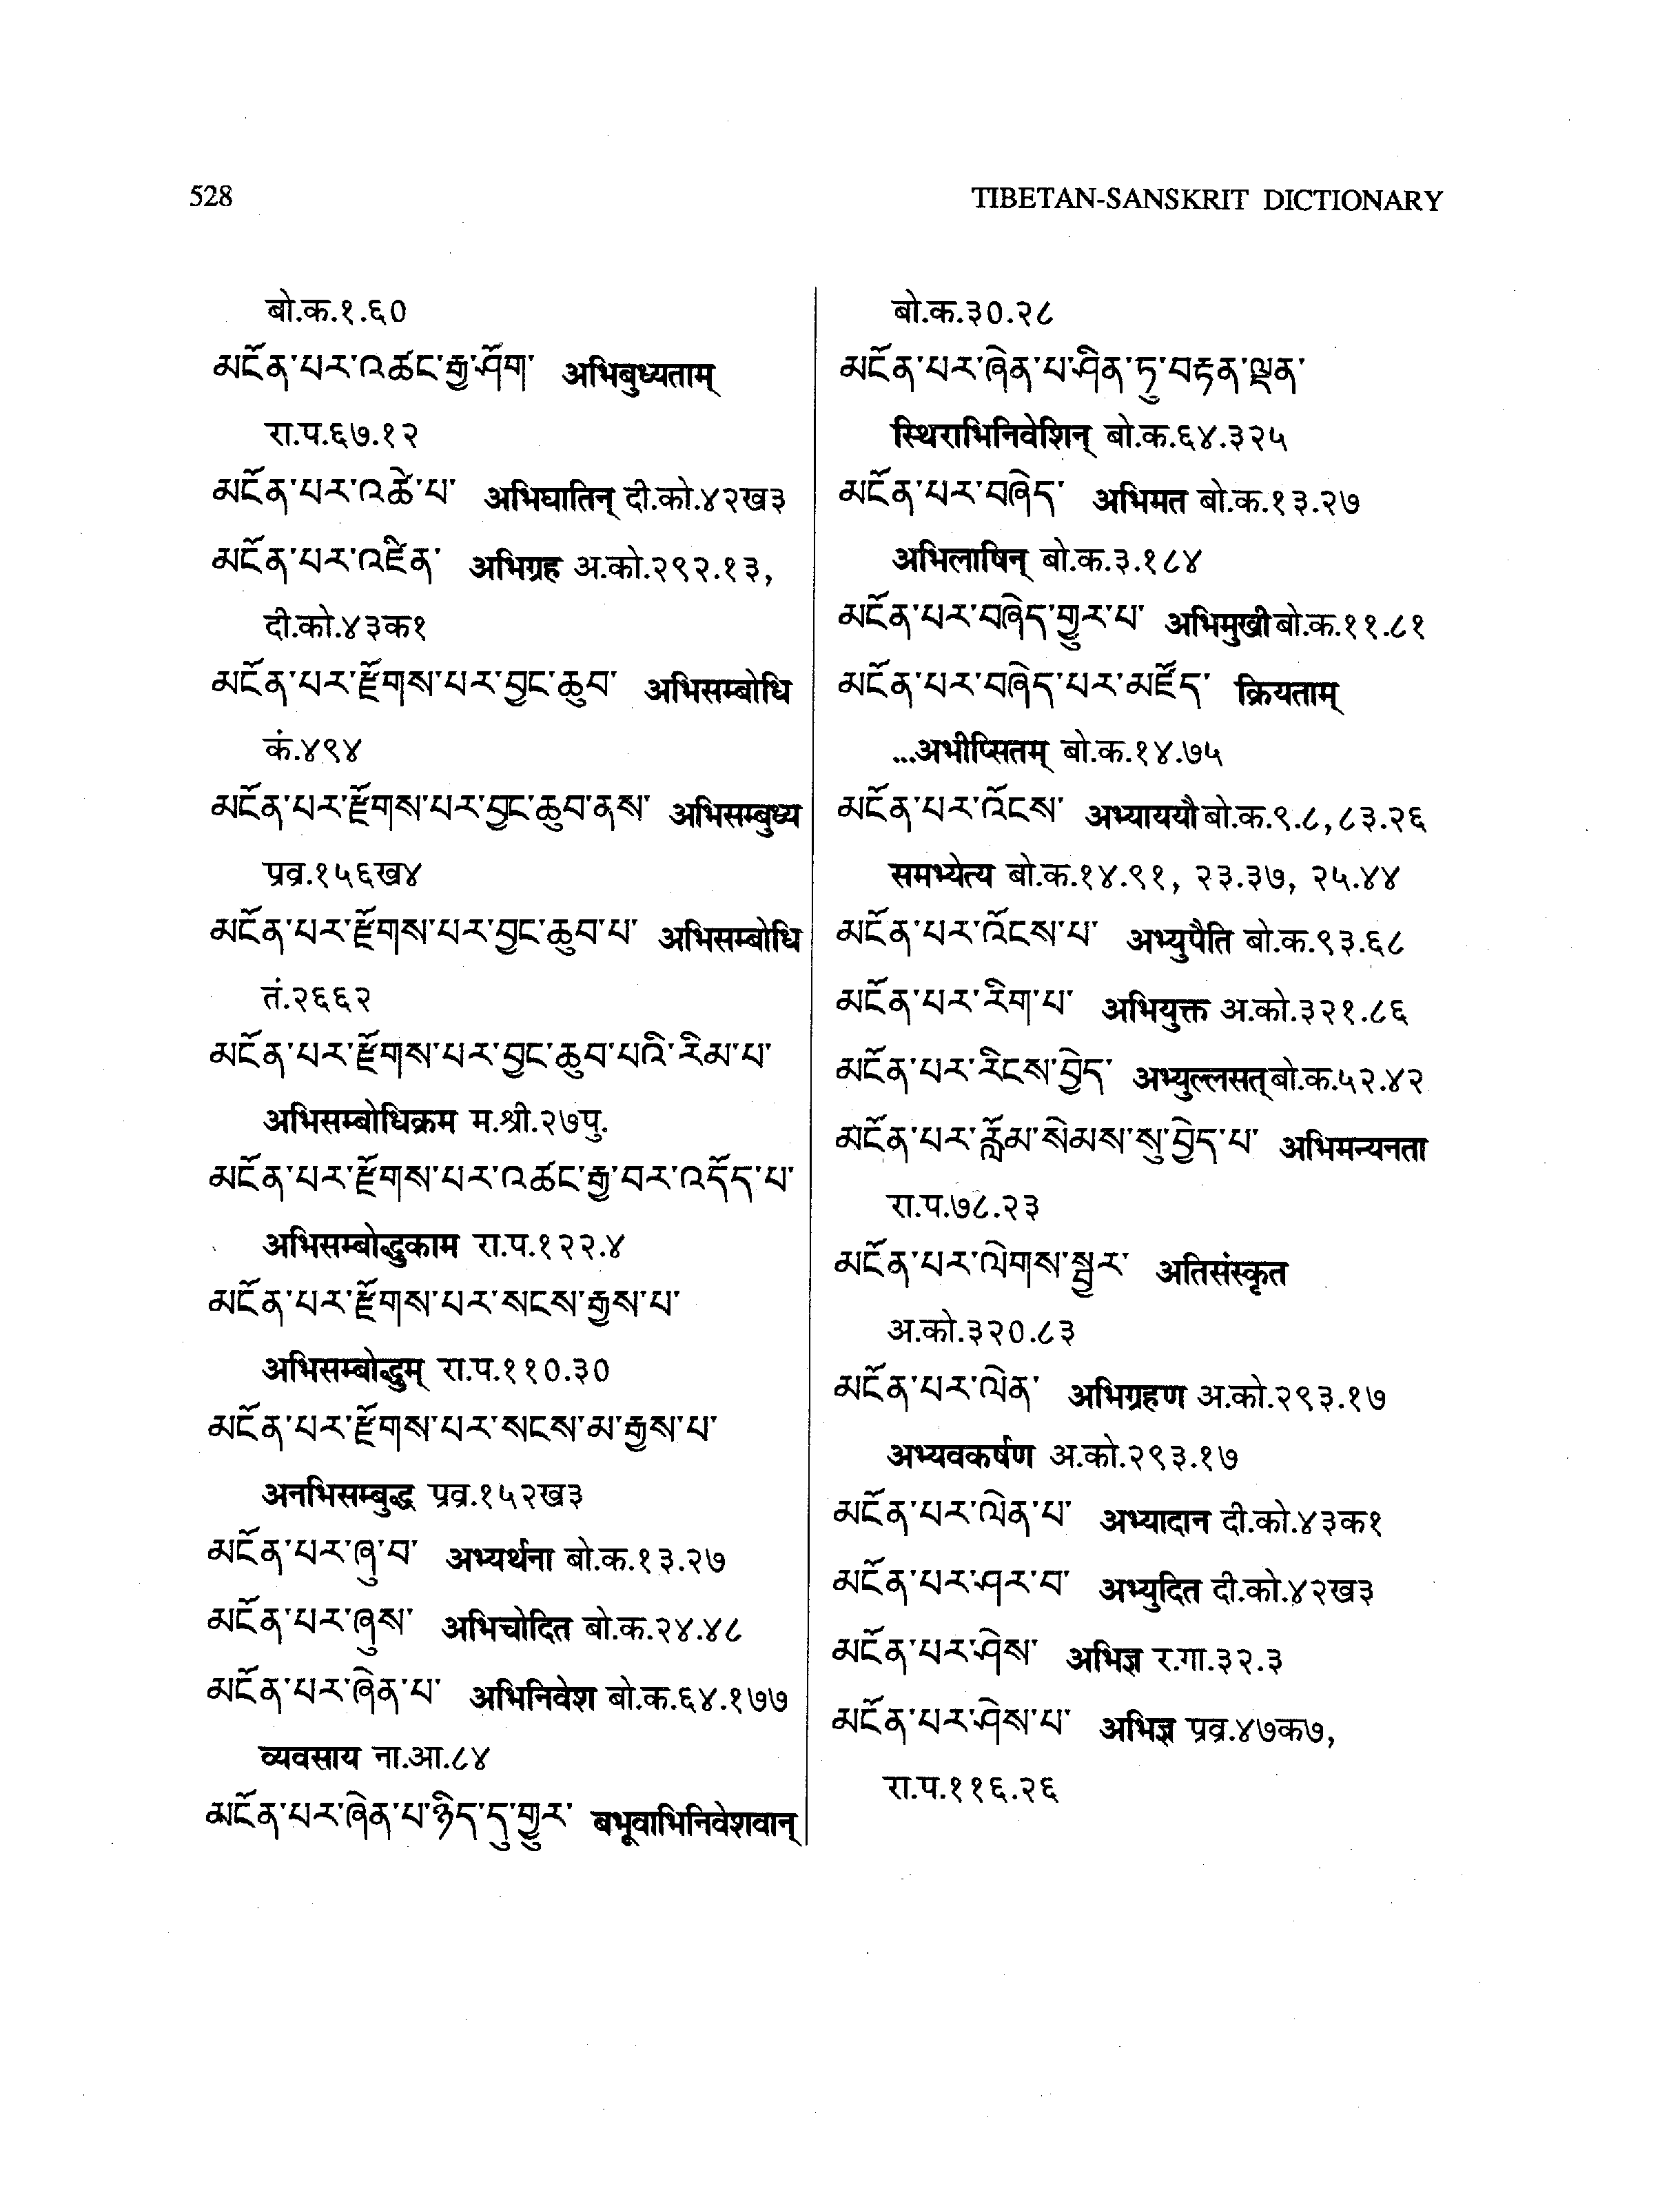 528
TIBETAN-SANSKRIT DICTIONARY
बो.क.१.६०
མངོན་པར་འཚང་རྒྱ་ཤོག་ अभिबुध्यताम्
रा.प.६७.१२
མངོན་པར་འཚེ་པ་ अभिघातिन् दी.को.४२ख३
མངོན་པར་འཛིན་ अभिग्रह अ.को.२९२.१३,
दी.को.४३क१
མངོན་པར་རྫོགས་པར་བྱང་ཆུབ་ अभिसम्बोधि
कं.४९४
མངོན་པར་རྫོགས་པར་བྱང་ཆུབ་ནས་ अभिसम्बुध्य
प्रव्र.१५६ख४
མངོན་པར་རྫོགས་པར་བྱང་ཆུབ་པ་ अभिसम्बोधि
तं.२६६२
མངོན་པར་རྫོགས་པར་བྱང་ཆུབ་པའི་རིམ་པ་
अभिसम्बोधिक्रम म.श्री.२७पु.
མངོན་པར་རྫོགས་པར་འཚང་རྒྱ་བར་འདོད་པ་
अभिसम्बोद्धुकाम रा.प.१२२.४
མངོན་པར་རྫོགས་པར་སངས་རྒྱས་པ་
अभिसम्बोद्धुम् रा.प.११०.३०
མངོན་པར་རྫོགས་པར་སངས་མ་རྒྱས་པ་
अनभिसम्बुद्ध प्रव्र.१५२ख३
མངོན་པར་ཞུ་བ་ अभ्यर्थना बो.क.१३.२७
མངོན་པར་ཞུས་ अभिचोदित बो.क.२४.४८
མངོན་པར་ཞེན་པ་ अभिनिवेश बो.क.६४.१७७
व्यवसाय ना.आ.८४
མངོན་པར་ཞེན་པ་ཉིད་དུ་གྱུར་ बभूवाभिनिवेशवान्
बो.क.३०.२८
མངོན་པར་ཞེན་པ་ཤིན་ཏུ་བརྟན་ལྡན་
स्थिराभिनिवेशिन् बो.क.६४.३२५
མངོན་པར་བཞེད་ अभिमत बो.क.१३.२७
अभिलाषिन् बो.क.३.१८४
མངོན་པར་བཞེད་གྱུར་པ་ अभिमुखी बो.क.११.८१
མངོན་པར་བཞེད་པར་མཛོད་ क्रियताम्
...अभीप्सितम् बो.क.१४.७५
མངོན་པར་འོངས་ अभ्याययौ बो.क.९.८, ८३.२६
समभ्येत्य बो.क.१४.९१, २३.३७, २५.४४
མངོན་པར་འོངས་པ་ अभ्युपैति बो.क.९३.६८
མངོན་པར་རིག་པ་ अभियुक्त अ.को.३२१.८६
མངོན་པར་རིངས་བྱེད་ अभ्युल्लसत् बो.क.५२.४२
མངོན་པར་རློམ་སེམས་སུ་བྱེད་པ་ अभिमन्यनता
रा.प.७८.२३
མངོན་པར་ལེགས་སྦྱར་ अतिसंस्कृत
अ.को.३२०.८३
མངོན་པར་ལེན་ अभिग्रहण अ.को.२९३.१७
अभ्यवकर्षण अ.को.२९३.१७
མངོན་པར་ལེན་པ་ अभ्यादान दी.को.४३क१
མངོན་པར་ཤར་བ་ अभ्युदित दी.को.४२ख३
མངོན་པར་ཤེས་ अभिज्ञ र.गा.३२.३
མངོན་པར་ཤེས་པ་ अभिज्ञ प्रव्र.४७क७,
रा.प.११६.२६